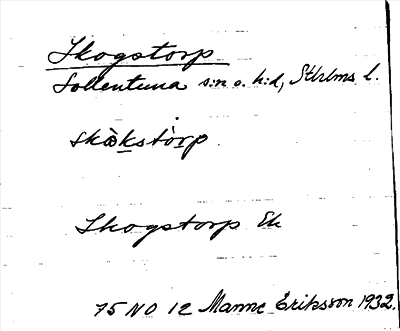 Skogstorp
Sollentuna s:n o. h:d, Sthlms l.
skò̀kstòrp
Skogstorp Ek
75 NO 12 Manne Eriksson 1932.